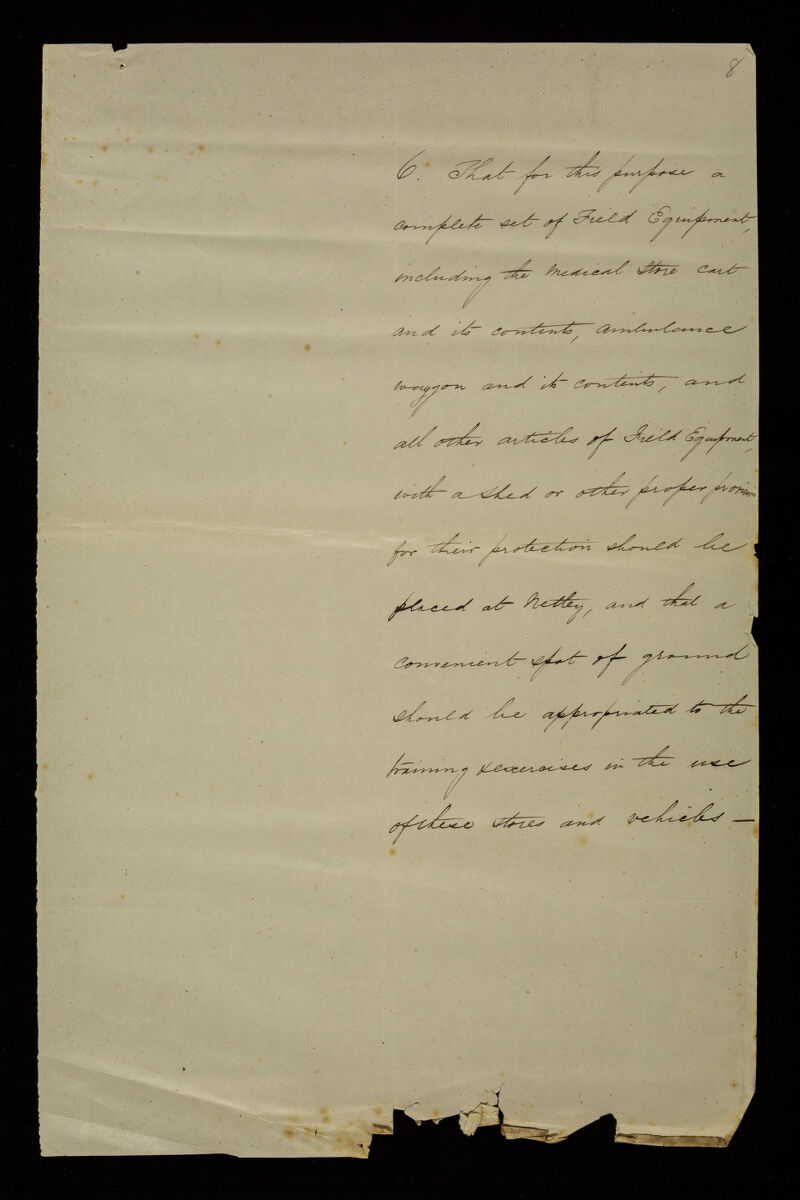 8
6. That for this purpose a
complete set of Field Equipment,
including the Medical Store cart
and its contents, ambulance
waggon and its contents, and
all other articles of Field Equipment,
with a shed or other proper provision
for their protection should be
placed at Netley, and that a
convenient spot of ground
should be appropriated to the
training & exercises in the use
of these stores and vehicles —